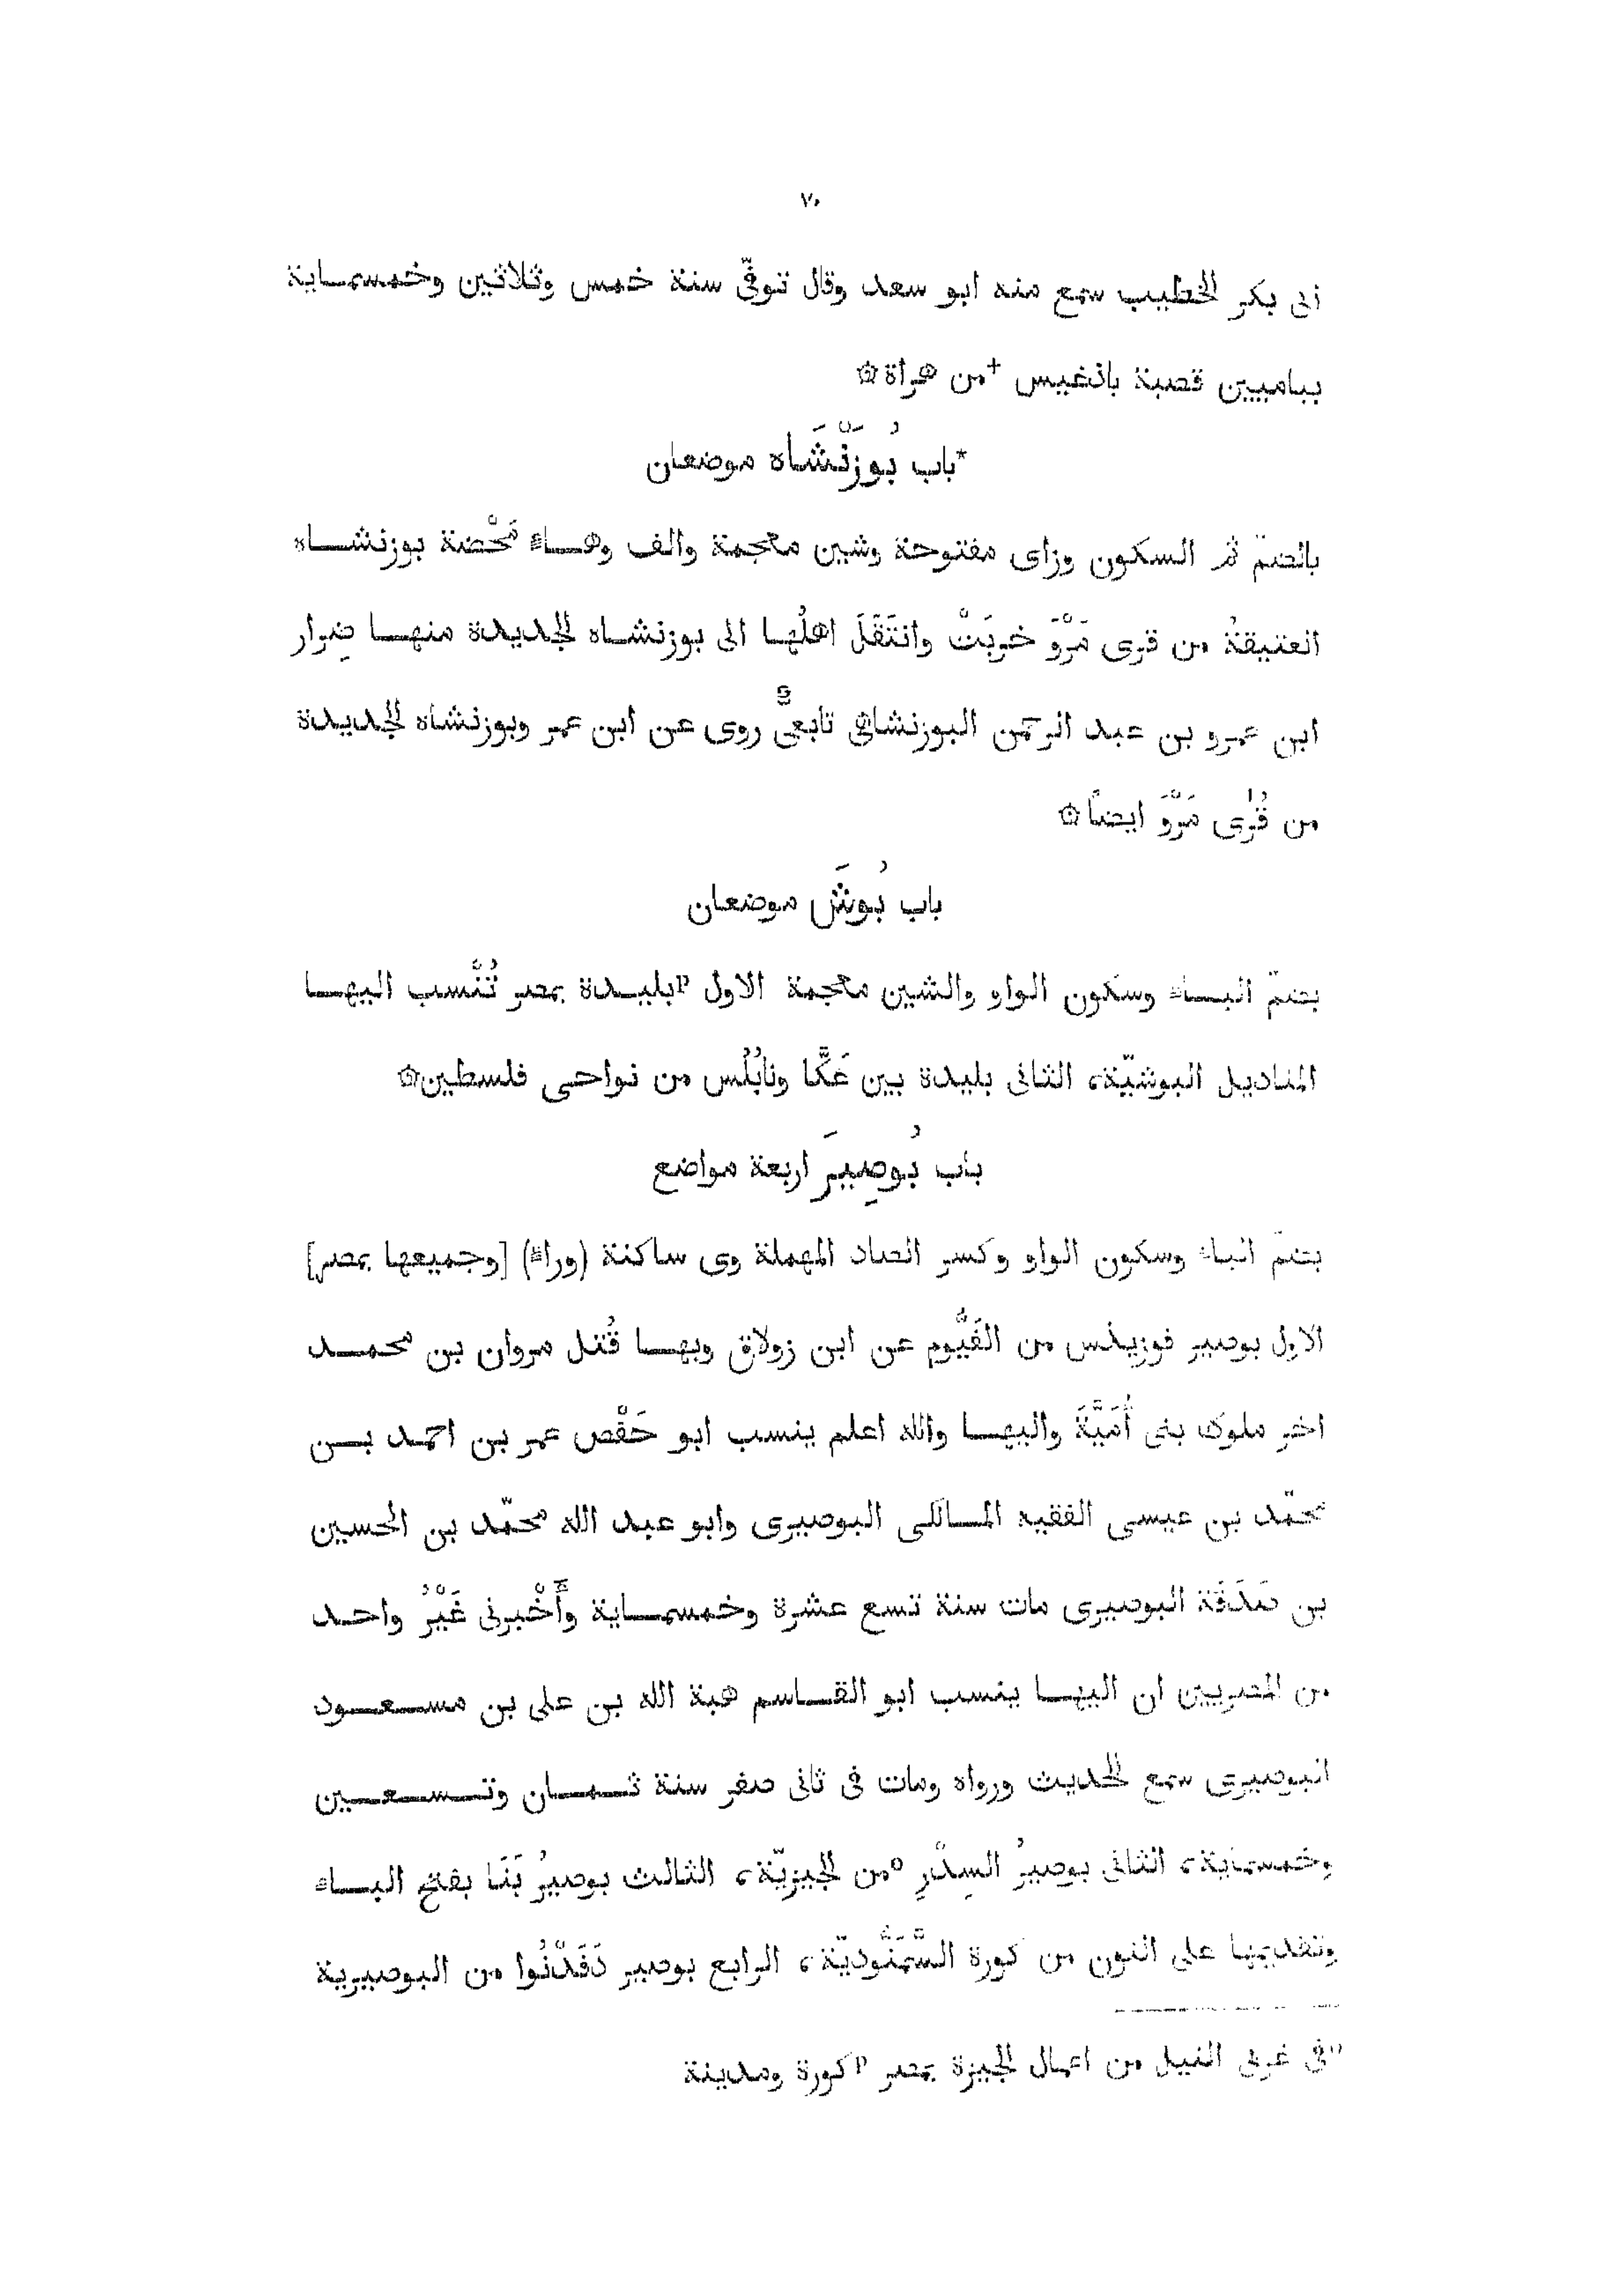 ٧٠
ابى بكر الخطيب سمع منه ابو سعد وقال توفّى سنة خمس وثلاثين وخمسماية
ببامييين قصبة باذغيس +من هراة۞
*باب بُوزَنْشَاه موضعان
بالضمّ ثم السكون وزاى مفتوحة وشين معجمة والف وهاء مَحْضة بوزنشاه
العتيقةُ من قرى مَرْوَ خربَتْ وانتَقَلَ اهلُها الى بوزنشاه الجديدة منها ضِرار
ابن عمرو بن عبد الرحمن البوزنشاهى تابعىٌّ روى عن ابن عمر وبوزنشاه الجديدة
من قُرى مَرْوَ ايضاً۞
باب بُوشَ موضعان
بضمّ الباء وسكون الواو والشين معجمة الاول ⁿبليدة بمصر تُنْسب اليها
المناديل البوشيّة، الثانى بليدة بين عَكَّا ونابُلُس من نواحى فلسطين۞
باب بُوصِيرَ اربعة مواضع
بضمّ الباء وسكون الواو وكسر الصاد المهملة وى ساكنة (وراء) [وجميعها بمصر]
الاول بوصير قوريذس من الفَيُّوم عن ابن زولاق وبها قُتل مروان بن محمد
اخر ملوك بنى أُمَيَّةَ واليها والله اعلم ينسب ابو حَفْص عمر بن احمد بن
محمّد بن عيسى الفقيه المالكى البوصيرى وابو عبد الله محمّد بن الحسين
بن صَدَقَة البوصيرى مات سنة تسع عشرة وخمسماية وأَخْبرنى غَيْرُ واحد
من المصريين ان اليها ينسب ابو القاسم هبة الله بن على بن مسعود
البوصيرى سمع الحديث ورواه ومات فى ثانى صفر سنة ثمان وتسعين
وخمسماية، الثانى بوصيرُ السِدْرِ ᵒمن الجيزيّة، الثالث بوصيرُ بَنَا بفتح الباء
وتقديمها على النون من كورة السَّمَنُّوديّة، الرابع بوصير دَفَدْنُوا من البوصيرية
ⁿفى غربى النيل من اعمال الجيزة بمصر ᵖكورة ومدينة